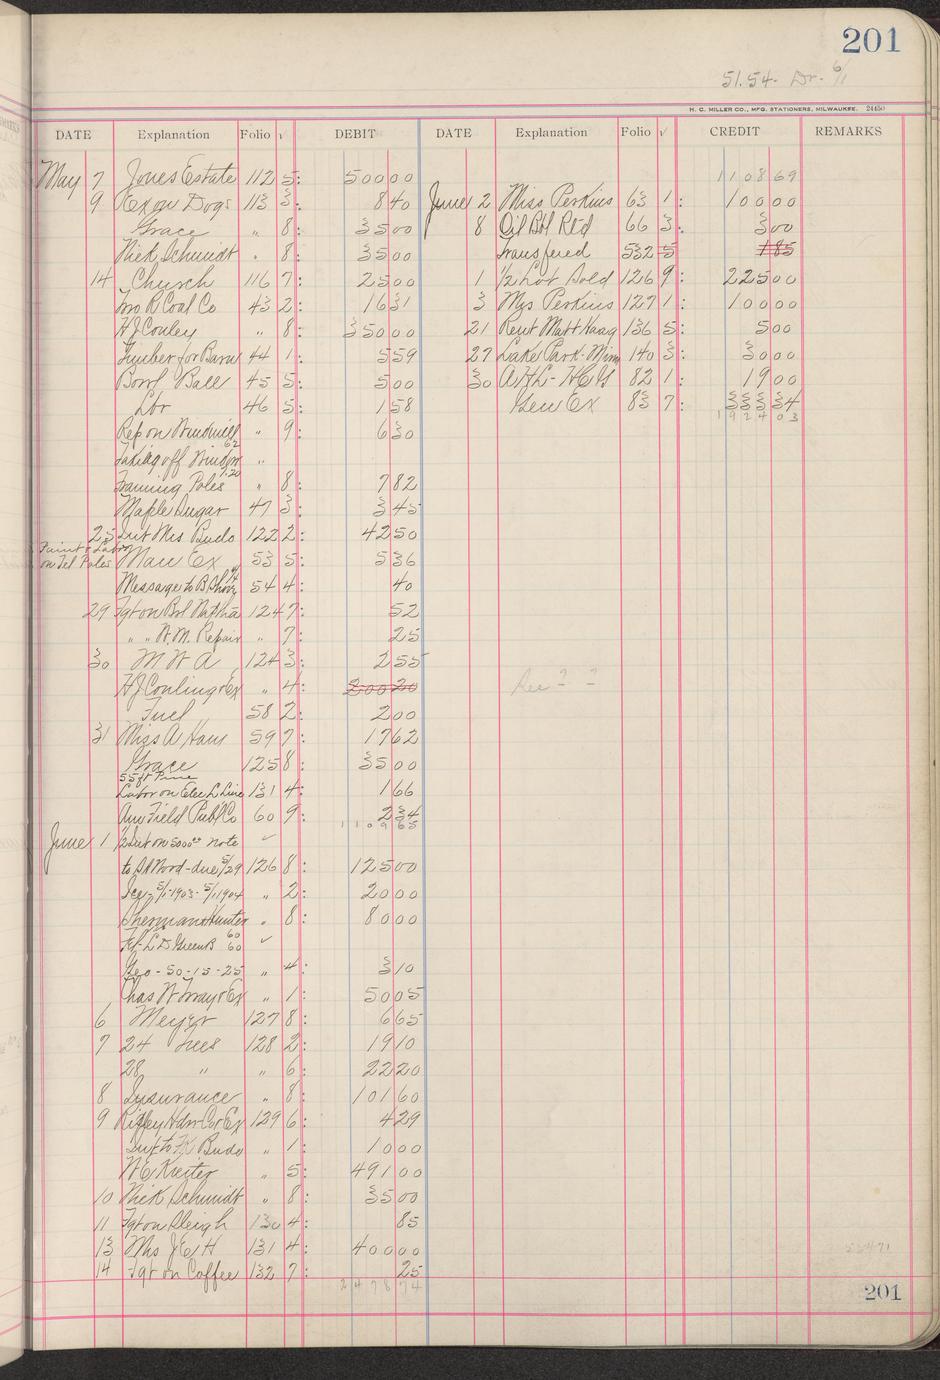 201
51.54. Dr. 6/1
H. C. MILLER CO., MFG. STATIONERS, MILWAUKEE. 24450
DATE Explanation Folio √ DEBIT DATE Explanation Folio √ CREDIT REMARKS
May 7 Jones Estate 112 5: 500 00
9 Ex on Dogs 113 3: 8 40
Grace " 8: 35 00
Nick Schmidt " 8: 35 00
14 Church 116 7: 25 00
R Coal Co 43 2: 16 31
H J Conley " 8: 350 00
Timber for Barn 44 1: 5 59
Bowl Ball 45 5: 5 00
Lbr 46 5: 1 58
Rep on Windmill " 9: 6 30
Taking off Window 62 "
Framing Poles 7.20 " 8: 7 82
Maple Sugar 47 3: 3 45
25 Int Mrs Budo 122 2: 42 50
Paint & Labor on Tel Poles Man Ex 53 5: 5 36
Message to B 54 4: 40
29 Fgt on Brl Naptha 124 7: 52
" " W.M. Repair " 7: 25
30 M W A 124 3: 2 55
H J Conling & Ex " 4: 200 20
Fuel 58 2: 2 00
31 Miss A Ham 59 7: 17 62
Grace 125 8: 35 00
55 ft Pine
Labor on Elec L Line 131 4: 1 66
Am Field Pub Co 60 9: 2 34
1109 65
June 1 1/2 Int on 5000.00 note √
to S A Wood - due 5/29 126 8: 125 00
Ice - 5/1-1903 - 5/1 1904 " 2: 20 00
Sherman Hunter " 8: 80 00
L D Green B 60 60 √
Geo - 50 - 15 - 25 " 4: 3 10
Chas W Mray & Ex " 1: 50 05
6 Meyer 127 8: 6 65
7 24 Trees 128 2: 19 10
28 " " 6: 22 20
8 Insurance " 8: 101 60
9 Ripley Hdw Co & Ex 129 6: 4 29
Int to Budo " 1: 10 00
W E Kreiter " 5: 491 00
10 Nick Schmidt " 8: 35 00
11 Fgt on Sleigh 130 4: 85
13 Mrs J E H 131 4: 400 00
14 Fgt on Coffee 132 7: 25
2478 74
1108 69
June 2 Miss Perkins 63 1: 100 00
8 Oil Brl Rtd 66 3: 3 00
Transfered 532 5 1 85
1 1/2 Lot Sold 126 9: 225 00
3 Mrs Perkins 127 1: 100 00
21 Rent Matt Haag 136 5: 5 00
27 Lake Park - Minn 140 3: 30 00
30 A H L - H C G 82 1: 19 00
Gen Ex 83 7: 333 34
1924 03
See ? ?
53471
201